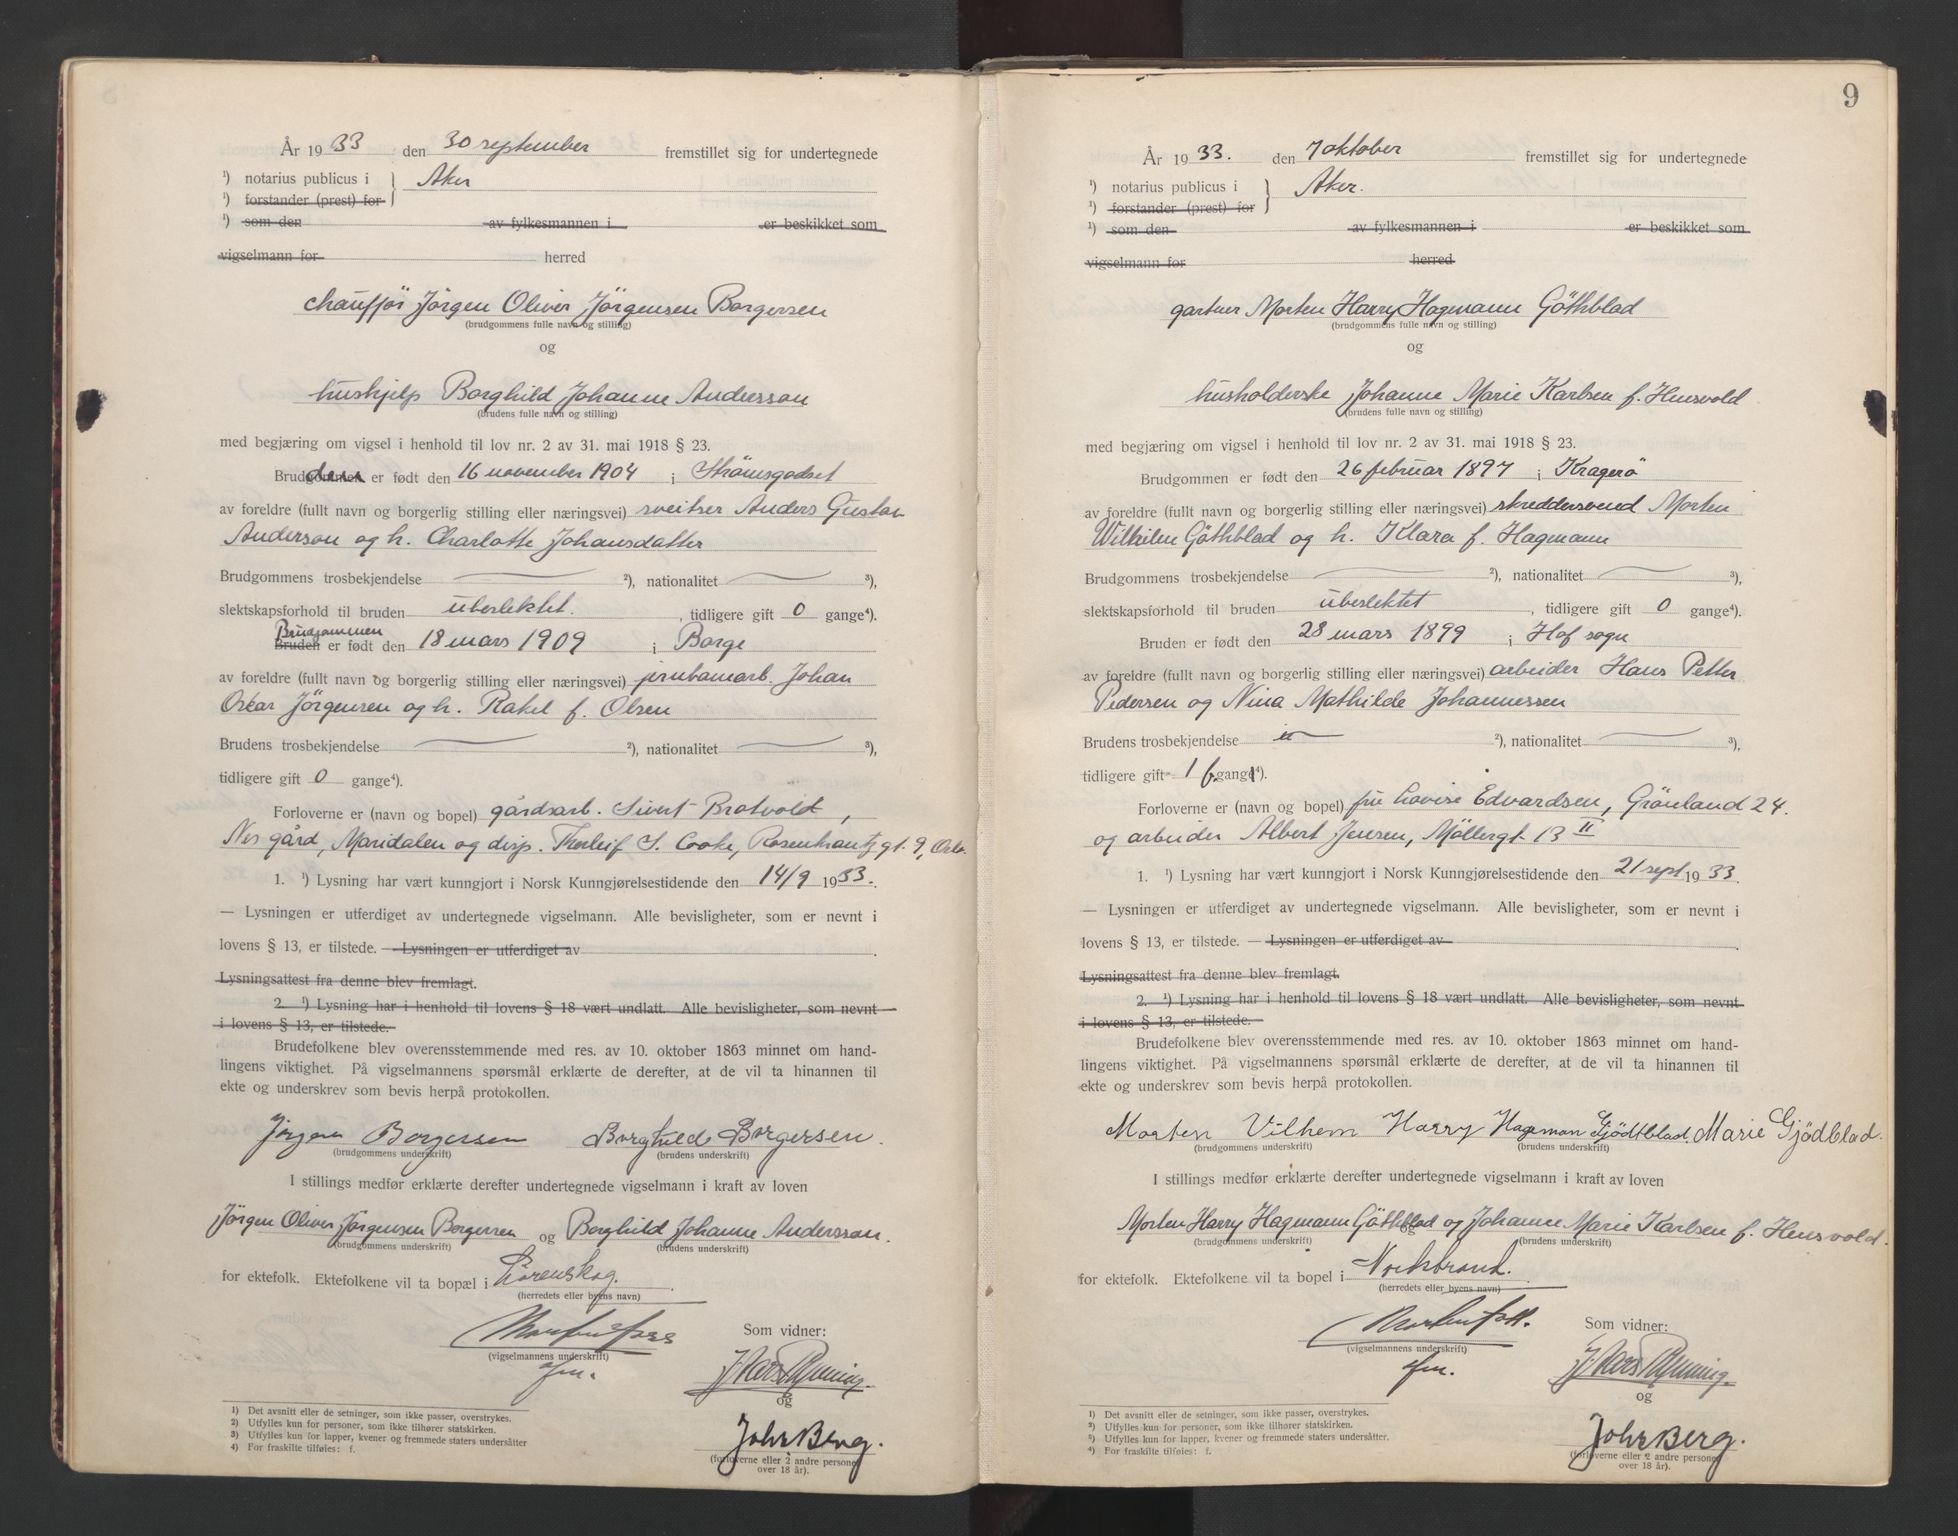 År 1933 den 30 september fremstillet sig for undertegnede
¹) notarius publicus i } Aker
¹) forstander (prest) for
¹) som den av fylkesmannen i er beskikket som
vigselmann for herred
chauffjör Jörgen Oliver Jörgensen Borgersen
(brudgommens fulle navn og stilling)
og
hushjelp Borghild Johanne Andersson
(brudens fulle navn og stilling)
med begjæring om vigsel i henhold til lov nr. 2 av 31. mai 1918 § 23.
Brudens er født den 16 november 1904 i Strömsgodset
av foreldre (fullt navn og borgerlig stilling eller næringsvei) sveitser Anders Gustav
Anderson og h. Charlotte Johansdatter
Brudgommens trosbekjendelse ²), nationalitet ³),
slektskapsforhold til bruden ubeslektet. , tidligere gift 0 gange⁴).
Brudgommen
Bruden er født den 18 mars 1909 i Borge
av foreldre (fullt navn og borgerlig stilling eller næringsvei) jernbanearb. Johan
Oskar Jörgensen og h. Rakel f. Olsen
Brudens trosbekjendelse ²), nationalitet ³),
tidligere gift 0 gange⁴).
Forloverne er (navn og bopel) gårdsarb. Sivert Bratvold,
Nes gård, Maridalen og disp. Thorleif S. Cooke, Rosenkrantz gt. 9, Oslo.
1. ¹) Lysning har vært kunngjort i Norsk Kunngjørelsestidende den 14/9 1933.
— Lysningen er utferdiget av undertegnede vigselmann. Alle bevisligheter, som er nevnt i
lovens § 13, er tilstede. — Lysningen er utferdiget av .
Lysningsattest fra denne blev fremlagt.
2. ¹) Lysning har i henhold til lovens § 18 vært undlatt. Alle bevisligheter, som nevnt
i lovens § 13, er tilstede.
Brudefolkene blev overensstemmende med res. av 10. oktober 1863 minnet om hand-
lingens viktighet. På vigselmannens spørsmål erklærte de derefter, at de vil ta hinannen til
ekte og underskrev som bevis herpå protokollen.
Jörgen Borgersen Borghild Borgersen.
(brudgommens underskrift) (brudens underskrift)
I stillings medfør erklærte derefter undertegnede vigselmann i kraft av loven
Jörgen Oliver Jörgensen Borgersen og Borghild Johanne Andersson.
(brudgommens underskrift) (brudens underskrift)
for ektefolk. Ektefolkene vil ta bopæl i Lörenskog.
(herredets eller byens navn)
Som vidner:
(vigselmannens underskrift)
og
Joh Berg.
(forloverne eller 2 andre personer
over 18 år).
1) Det avsnitt eller de setninger, som ikke passer, overstrykes.
2) Utfylles kun for personer, som ikke tilhører statskirken.
3) Utfylles kun for lapper, kvener og fremmede staters undersåtter
4) For fraskilte tilføies: f.
9
År 1933. den 7 oktober fremstillet sig for undertegnede
¹) notarius publicus i } Aker.
¹) forstander (prest) for
¹) som den av fylkesmannen i er beskikket som
vigselmann for herred
gartner Morten Harry Hagmann Göthblad
(brudgommens fulle navn og stilling)
og
husholderske Johanne Marie Karlsen f. Hensvold
(brudens fulle navn og stilling)
med begjæring om vigsel i henhold til lov nr. 2 av 31. mai 1918 § 23.
Brudgommen er født den 26 februar 1897 i Kragerö
av foreldre (fullt navn og borgerlig stilling eller næringsvei) skreddersvend Morten
Wilhelm Göthblad og h. Klara f. Hagmann
Brudgommens trosbekjendelse ²), nationalitet ³),
slektskapsforhold til bruden ubeslektet , tidligere gift 0 gange⁴).
Bruden er født den 28 mars 1899 i Hof sogn
av foreldre (fullt navn og borgerlig stilling eller næringsvei) arbeider Hans Petter
Pedersen og Nina Mathilde Johannessen
Brudens trosbekjendelse ²), nationalitet ³),
tidligere gift 1 f. gang⁴).
Forloverne er (navn og bopel) fru Lovise Edvardsen, Grönland 24.
og arbeider Albert Jensen, Möllergt. 13 II
1. ¹) Lysning har vært kunngjort i Norsk Kunngjørelsestidende den 21 sept 1933.
— Lysningen er utferdiget av undertegnede vigselmann. Alle bevisligheter, som er nevnt i
lovens § 13, er tilstede. — Lysningen er utferdiget av .
Lysningsattest fra denne blev fremlagt.
2. ¹) Lysning har i henhold til lovens § 18 vært undlatt. Alle bevisligheter, som nevnt
i lovens § 13, er tilstede.
Brudefolkene blev overensstemmende med res. av 10. oktober 1863 minnet om hand-
lingens viktighet. På vigselmannens spørsmål erklærte de derefter, at de vil ta hinannen til
ekte og underskrev som bevis herpå protokollen.
Morten Vilhem Harry Hageman Gjödtblad. Marie Gjödblad.
(brudgommens underskrift) (brudens underskrift)
I stillings medfør erklærte derefter undertegnede vigselmann i kraft av loven
Morten Harry Hagmann Göthblad og Johanne Marie Karlsen f. Hensvold.
(brudgommens underskrift) (brudens underskrift)
for ektefolk. Ektefolkene vil ta bopel i Nordstrand.
(herredets eller byens navn)
Som vidner:
(vigselmannens underskrift)
og
Joh Berg.
(forloverne eller 2 andre personer
over 18 år).
1) Det avsnitt eller de setninger, som ikke passer, overstrykes.
2) Utfylles kun for personer, som ikke tilhører statskirken.
3) Utfylles kun for lapper, kvener og fremmede staters undersåtter.
4) For fraskilte tilføies: f.